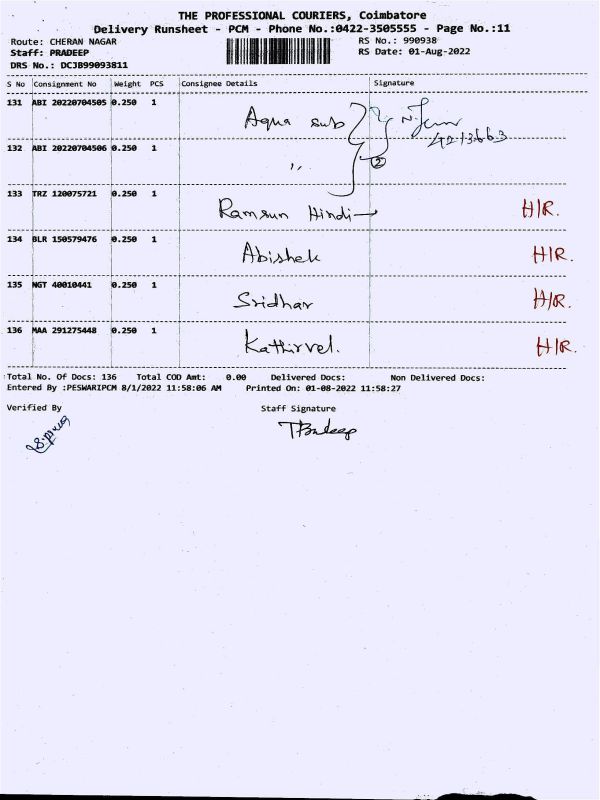 THE PROFESSIONAL COURIERS, Coimbatore
Delivery Runsheet - PCM - Phone No.:0422-3505555 - Page No.:11
Route: CHERAN NAGAR RS No.: 990938
Staff: PRADEEP RS Date: 01-Aug-2022
DRS No.: DCJB99093811
S No Consignment No Weight PCS Consignee Details Signature
131 ABI 20220704505 0.250 1 Aqua sub
132 ABI 20220704506 0.250 1 " 2
133 TRZ 120075721 0.250 1 Ramsun Hindi H/R.
134 BLR 150579476 0.250 1 Abishek H/R.
135 NGT 40010441 0.250 1 Sridhar H/R.
136 MAA 291275448 0.250 1 Kathirvel. H/R.
Total No. Of Docs: 136 Total COD Amt: 0.00 Delivered Docs: Non Delivered Docs:
Entered By :PESWARIPCM 8/1/2022 11:58:06 AM Printed On: 01-08-2022 11:58:27
Verified By Staff Signature